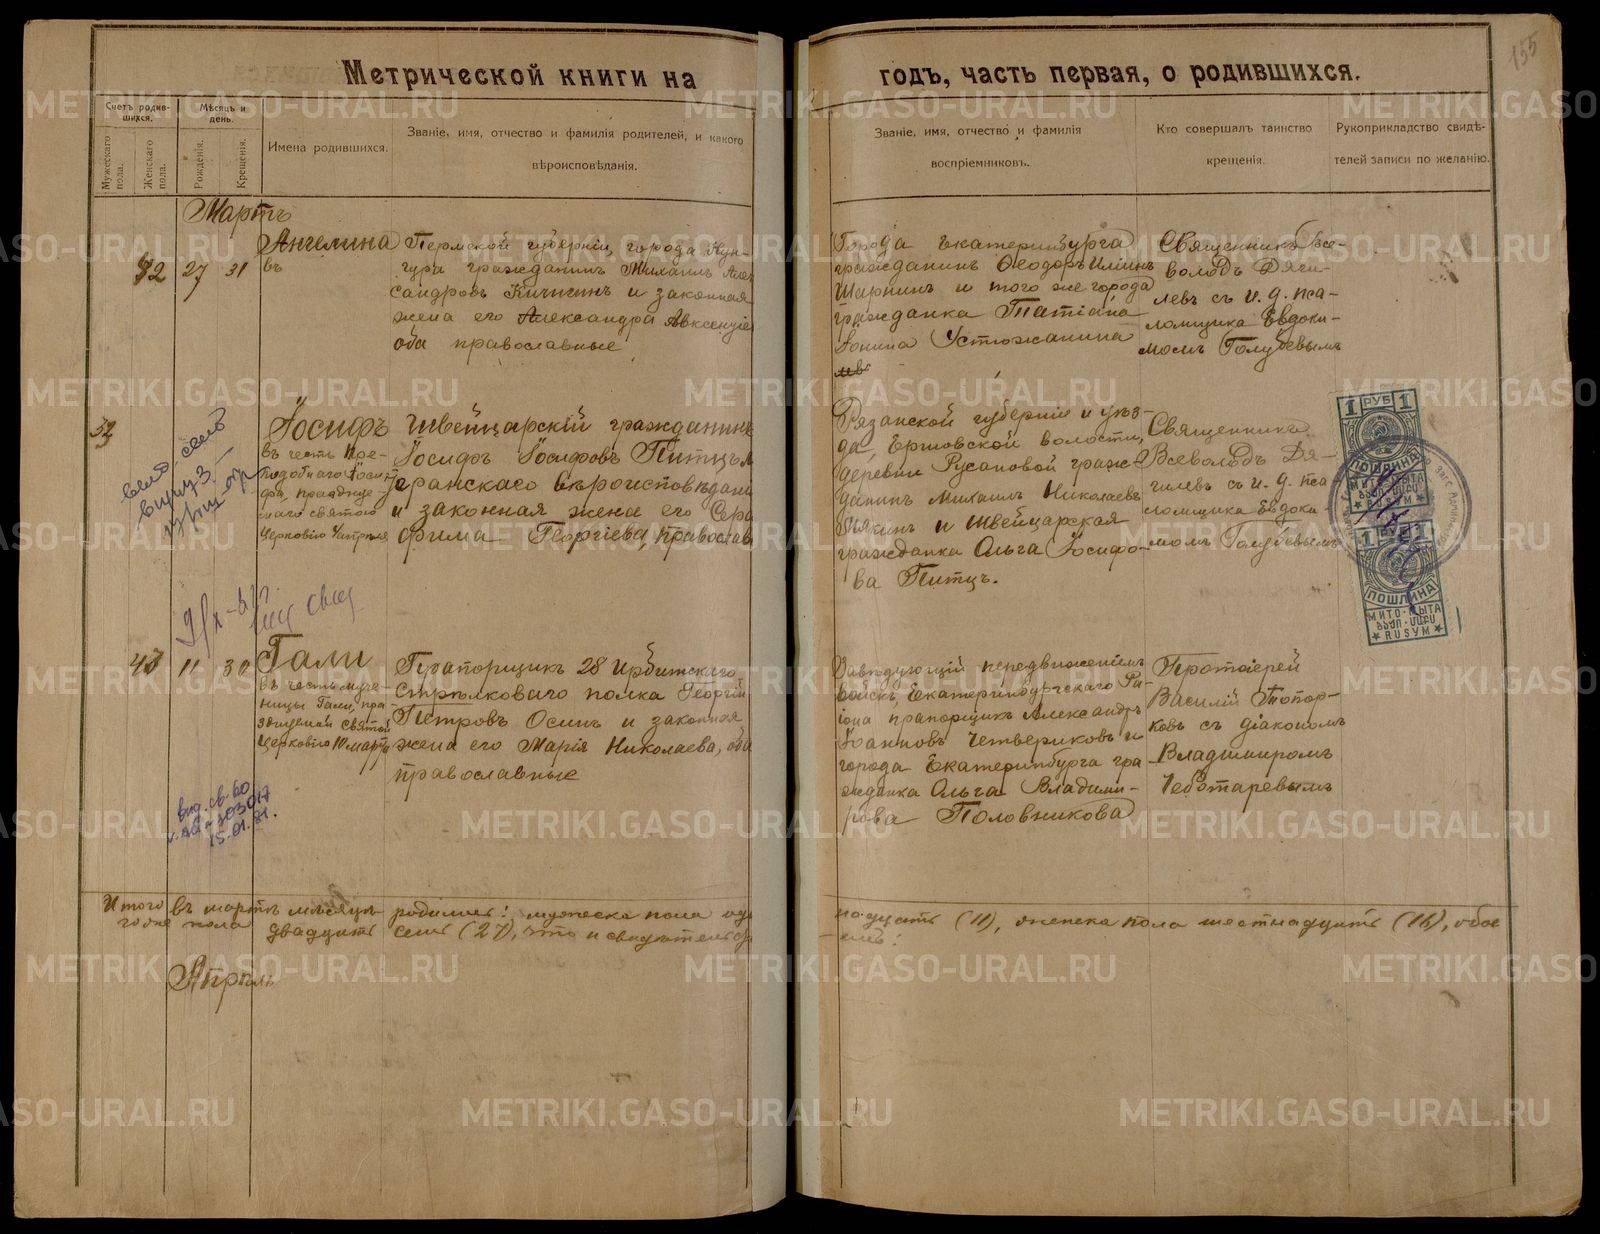 Метрической книги на
годъ, часть первая, о родившихся.
155
Счетъ родив-
шихся.
Мѣсяцъ и
день.
Мужескаго
пола.
Женскаго
пола.
Рожденія.
Крещенія.
Имена родившихся.
Званіе, имя, отчество и фамилія родителей, и какого
вѣроисповѣданія.
Званіе, имя, отчество и фамилія
воспріемниковъ.
Кто совершалъ таинство
крещенія.
Рукоприкладство свидѣ-
телей записи по желанію.
Мартъ
42 27 31
Ангелина
въ
Пермской губерніи, города Кун-
гура гражданинъ Михаилъ Алек
сандровъ Кичигинъ и законная
жена его Александра Авксентіе
оба православные
Города Екатеринбурга
гражданинъ Ѳеодоръ Иліинъ
и того же города
гражданка Татіана
Іонина Устюжанина
Священникъ Все-
володъ Дяги-
левъ съ и. д. пса-
ломщика Евдоки-
момъ Голубевымъ
Іосифъ
въ честь Пре-
подобнаго Іоси-
фа, празднуе-
маго святою
Церковію 4 апрѣля
Швейцарскій гражданинъ
Іосифъ Іосифовъ Питцъ
теранскаго вѣроисповѣдані
и законная жена его Сера
фима Георгіева, православ
Рязанской губерніи и уѣз-
да, Ершовской волости,
деревни Русановой граж-
данинъ Михаилъ Николаевъ
и Швейцарская
гражданка Ольга Іосифо-
ва Питцъ.
Священникъ
Всеволодъ Дя-
гилевъ съ и. д. пса
ломщика Евдоки-
момъ Голубевымъ
1 РУБ 1
ПОШЛИНА
RUSYM
1 1
ПОШЛИНА
МИТО·МЫТА
RUSYM
11 30
Гали
въ честь муче-
ницы Гали, пра-
зднуемой святой
Церковію 10 марта
Прапорщикъ 28 Ирбитскаго
стрѣлковаго полка Георгій
Петровъ Осинъ и законная
жена его Марія Николаева, оба
православные
Завѣдующій передвиженіемъ
войскъ, Екатеринбургскаго Ра-
іона прапорщикъ Александръ
Іоанновъ Четвериковъ и
города Екатеринбурга гра
жданка Ольга Владими-
рова Половникова
Протоіерей
Василій Топор-
ковъ съ діакономъ
Владимиромъ
Чеботаревымъ
15.01.81.
Итого въ мартѣ мѣсяцѣ родилось: мужеска пола оди
надцать (11), женска пола шестнадцать (16), обое
го же пола двадцать семь (27), что и свидѣтельству
емъ:
Апрѣль
METRIKI.GASO-URAL.RU